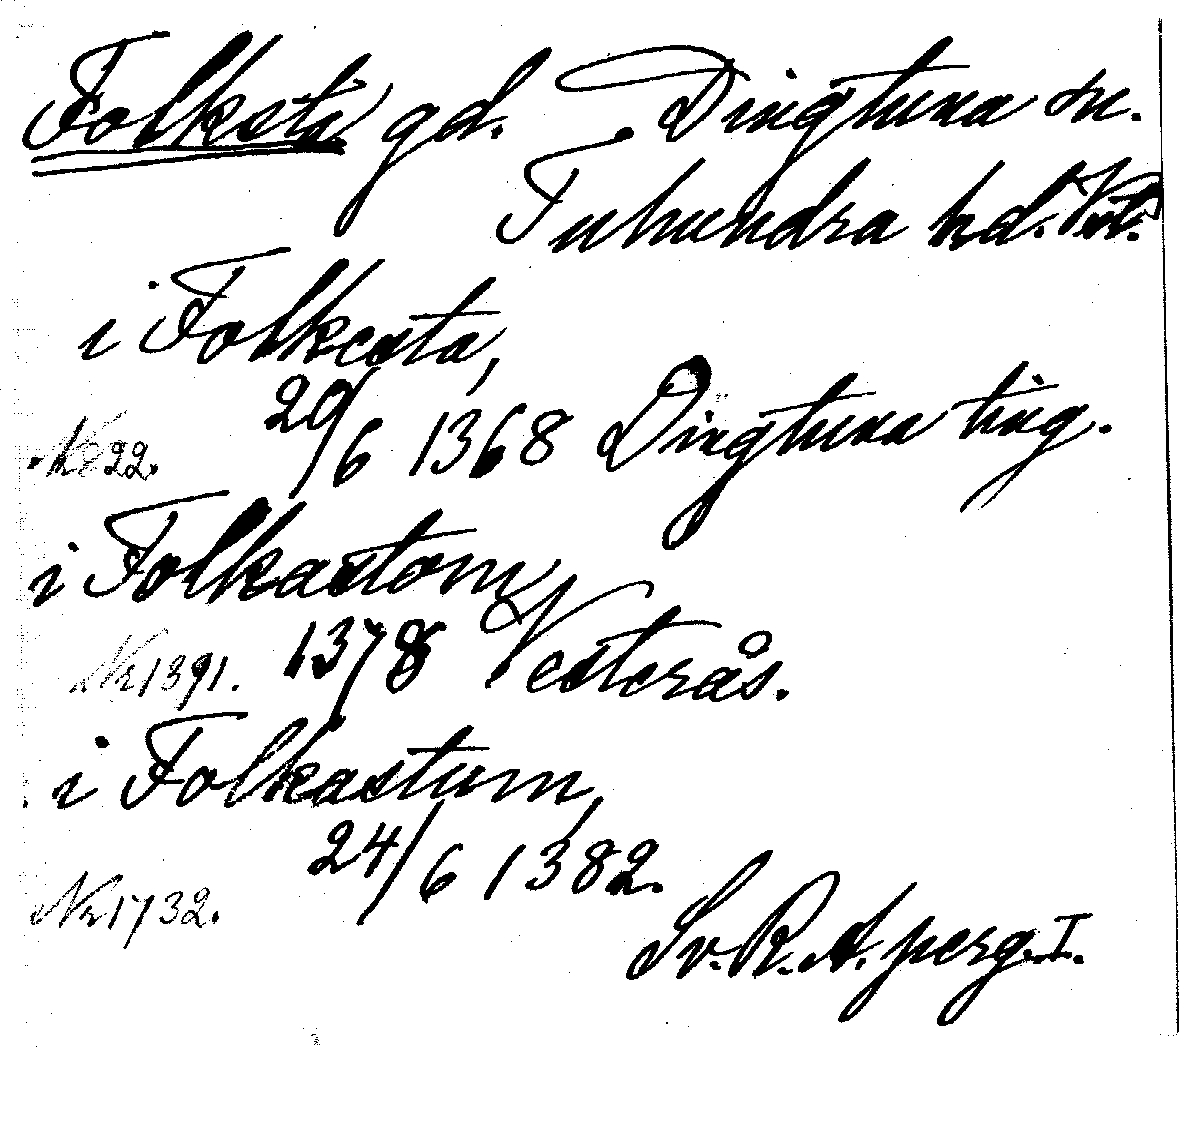 Folksta gd. Dingtuna sn.
Tuhundra hd. Vstl.
i Folkesta,
20/6 1368 Dingtuna ting.
Nr 22.
i Folkastom,
Nr 1391. 1378 Vesterås.
i Folkastum,
24/6 1382.
Nr 1732.
Sv. R. A. perg. I.